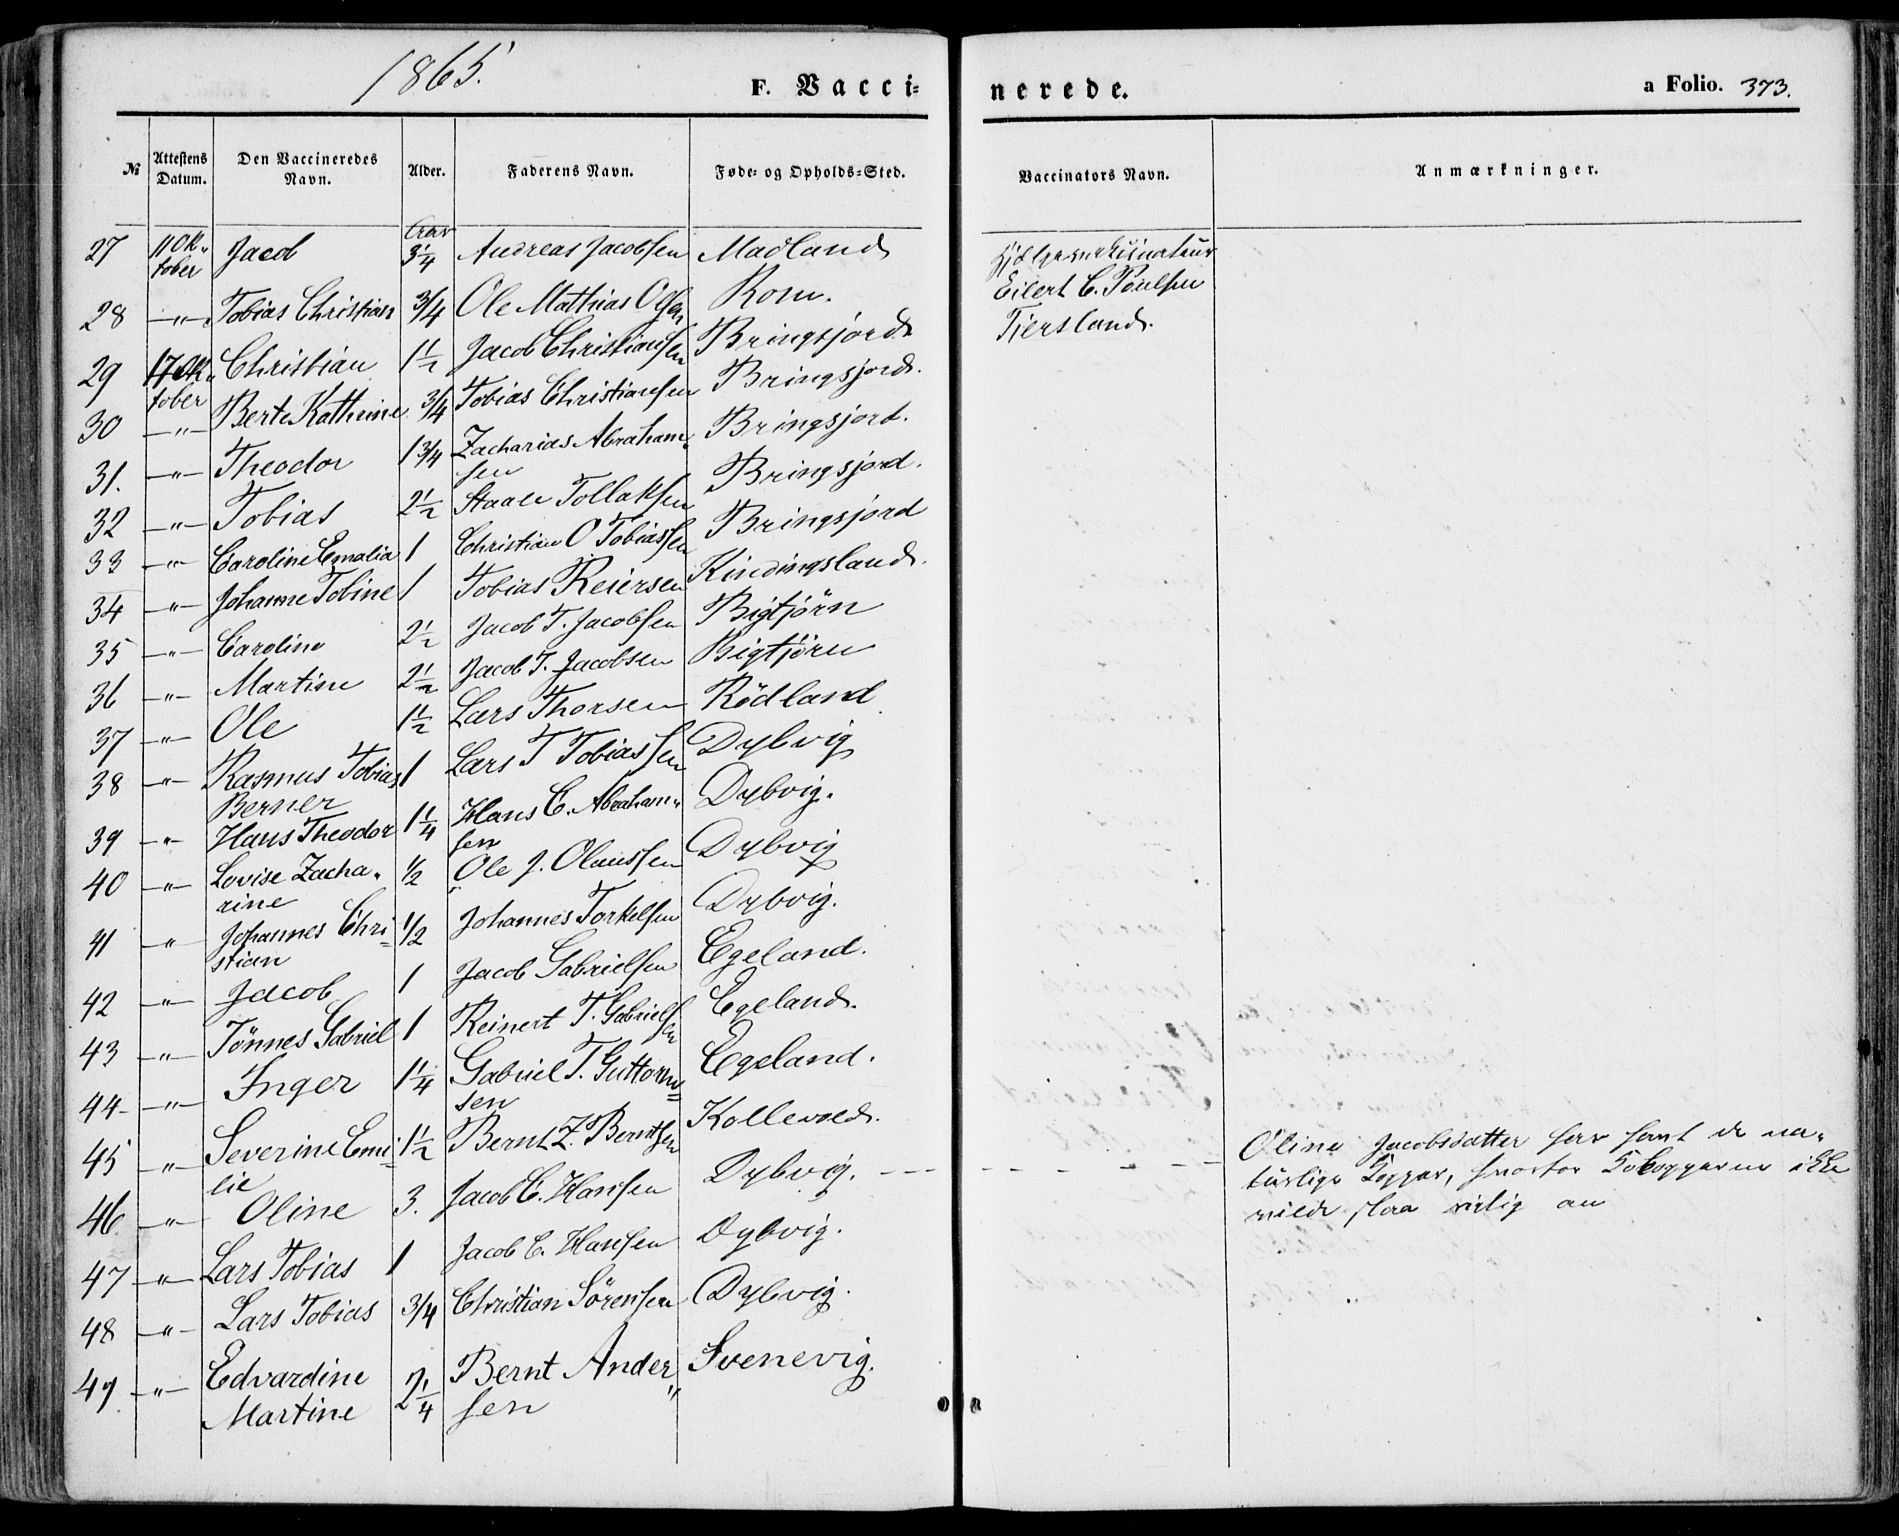 1865.
F. Vacci=
nerede.
a Folio. 373.
№
Attestens Datum.
Den Vaccineredes Navn.
Alder.
Faderens Navn.
Føde- og Opholds-Sted.
Vaccinators Navn.
Anmærkninger.
27 11 Ok„tober Jacob 3/4 Andreas Jacobsen Madland
Eilert C. Poulsen
Tjersland.
28 —„— Tobias Christian 3/4 Ole Mathias Olsen Rom.
29 17 Ok„tober Christian 1 1/2 Jacob Christiansen Bringsjord
30 —„— Berte Kathrine 3/4 Tobias Christiansen Bringsjord.
31. —„— Theodor 1 3/4 Zacharias Abraham„sen Bringsjord.
32 —„— Tobias 2 1/2 Staale Tollaksen Bringsjord.
33 —„— Caroline Emalia 1 Christian O Tobiassen Bringsjord
34 —„— Johanne Tobine 1 Tobias Reiersen Kindingsland.
35 —„— Caroline 2 1/2 Jacob T. Jacobsen Bigtjörn
36 —„— Martine 2 1/2 Jacob T. Jacobsen Bigtjörn
37 —„— Ole 1 1/2 Lars Thorsen Rödland
38 —„— Rasmus Tobias Berner 1 Lars T Tobiassen Dybvig
39 —„— Hans Theodor 1 1/4 Hans C. Abraham„sen Dybvig.
40 —„— Lovise Zacha„rine 1/2 Ole J. Olaussen Dybvig
41 —„— Johannes Chri=stian 1/2 Johannes Torkelsen Dybvig.
42 —„— Jacob 1 Jacob Gabrielsen Egeland.
43 —„— Tönnes Gabriel 1 Reinert T. Gabrielsen Egeland.
44 —„— Inger 1 1/4 Gabriel T. Guttorm=sen Egeland.
45 —„— Severine Emi=lie 1 1/2 Bernt Z. Berntsen Kollevold.
46 —„— Oline 3. Jacob C. Hansen Dybvig. Oline Jacobsdatter har havt de na„
turlige Kopper, hvorfor Kokopperne ikke
vilde slaa rigtig an
47 —„— Lars Tobias 1 Jacob C. Hansen Dybvig.
48 —„— Lars Tobias 3/4 Christian Sörensen Dybvig.
49 —„— Edvardine Martine 2 1/4 Bernt Ander„sen Svenevig.